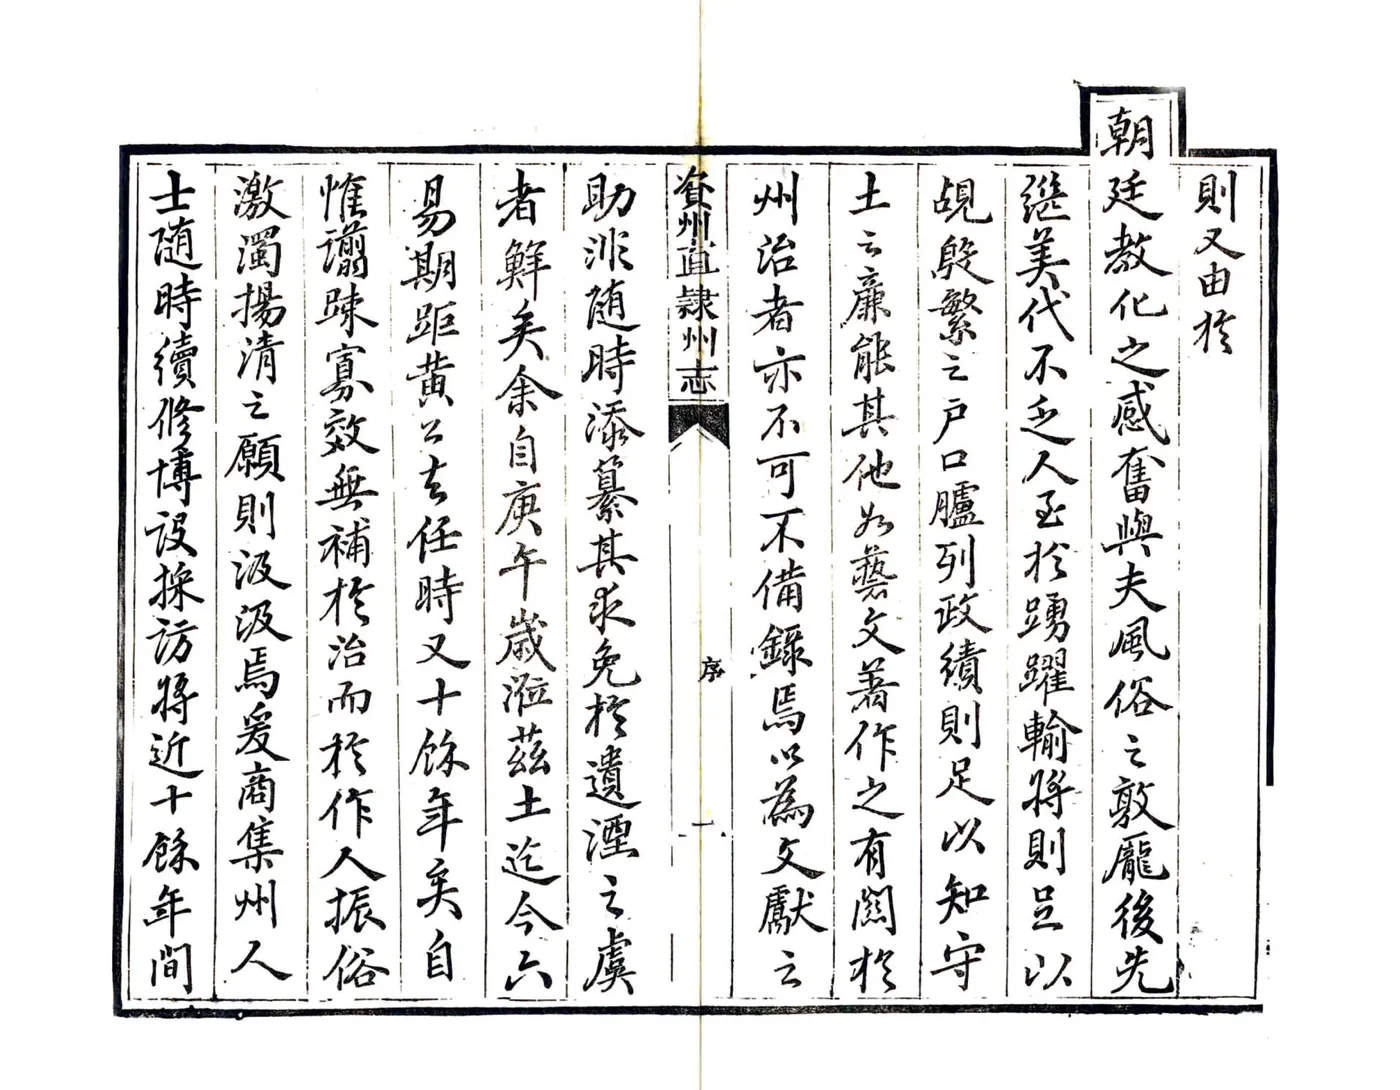 則又由於
朝廷教化之感奮與夫風俗之敦龐後先
繼美代不乏人至於踴躍輸將則足以
覘殷繁之戶口臚列政績則足以知守
土之廉能其他如藝文著作之有關於
州治者亦不可不備錄焉以為文獻之
資州直隸州志
序
一
助非随時添纂其求免於遺湮之虞
者鮮矣余自庚午歲涖茲土迄今六
易期距黄公去任時又十餘年矣自
惟謭踈寡效無補於治而於作人振俗
激濁揚清之願則汲汲焉爰商集州人
士随時續修博設採訪將近十餘年間